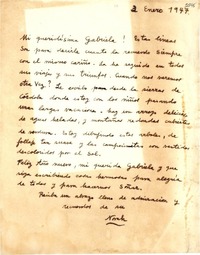 2 Enero 1947
Mi queridísima Gabriela! Estas líneas
son para decirle cuanto la recuerdo siempre
con el mismo cariño. La he seguido en todos
sus viajes y sus triunfos. Cuando nos veremos
otra vez? Le escribo desde las sierras de
Córdoba donde estoy con los niños pasando
unas largas vacaciones, hay un arroyo delicioso
de aguas heladas, y montañas redondas cubiertas
de verdura. Estoy dibujando estos árboles, de
follaje tan suave y las campesinitas con vestidos
descoloridos por el sol.
Feliz Año nuevo, mi querida Gabriela y que
siga escribiendo cosas hermosas para alegría
de todos y para hacernos soñar.
Reciba un abrazo lleno de admiración y
recuerdos de su
Norah